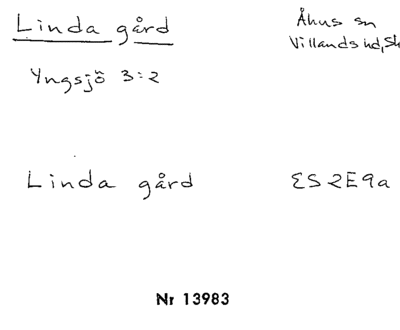 Linda gård
Åhus sn
Villands hd, Sk
Yngsjö 3:2
Linda gård
ES 2E9a
Nr 13983